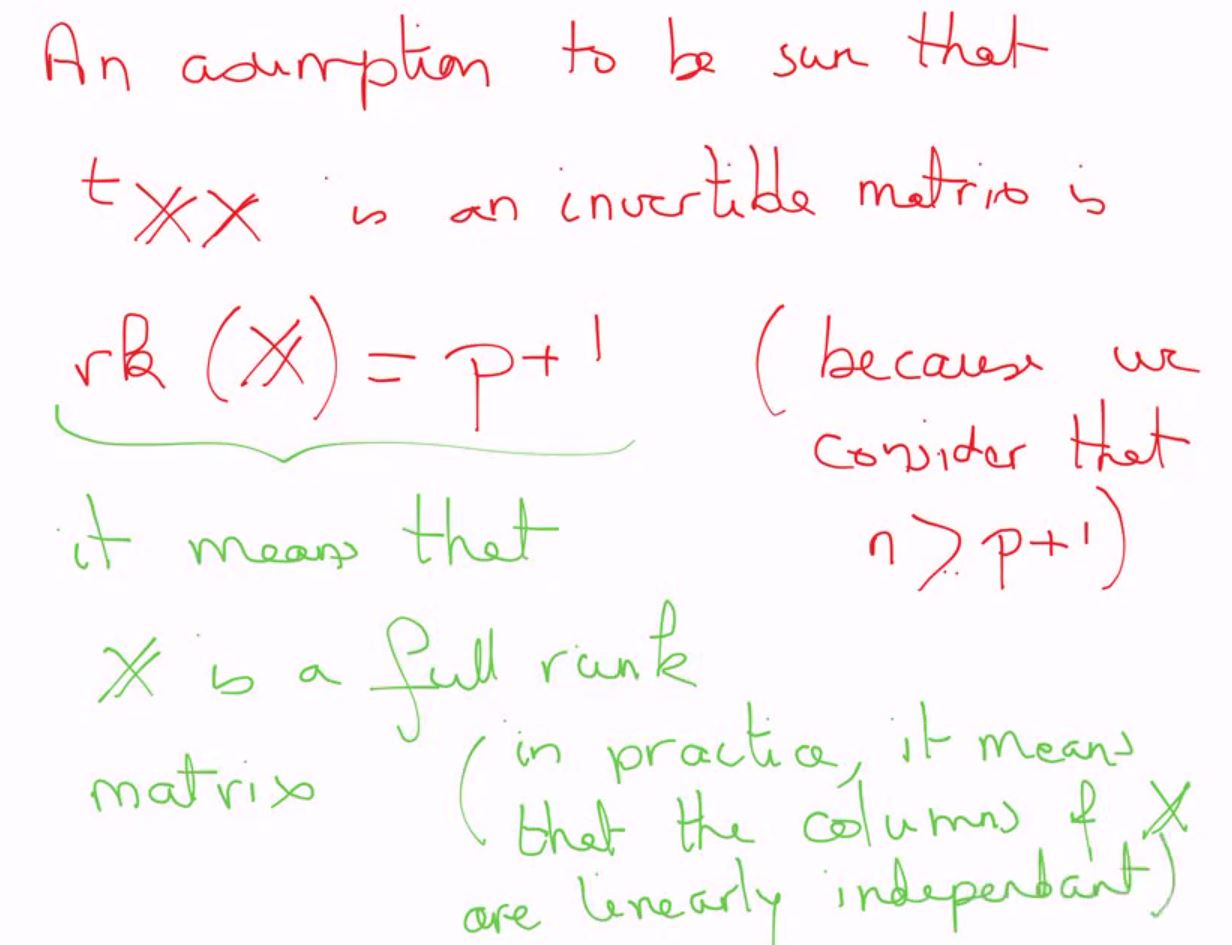 An assumption to be sure that
ᵗ𝕏X is an invertible matrix is
rk (𝕏) = p+1 (because we
consider that
n ⩾ p+1)
it means that
𝕏 is a full rank
matrix (in practice, it means
that the columns of 𝕏
are linearly independant)